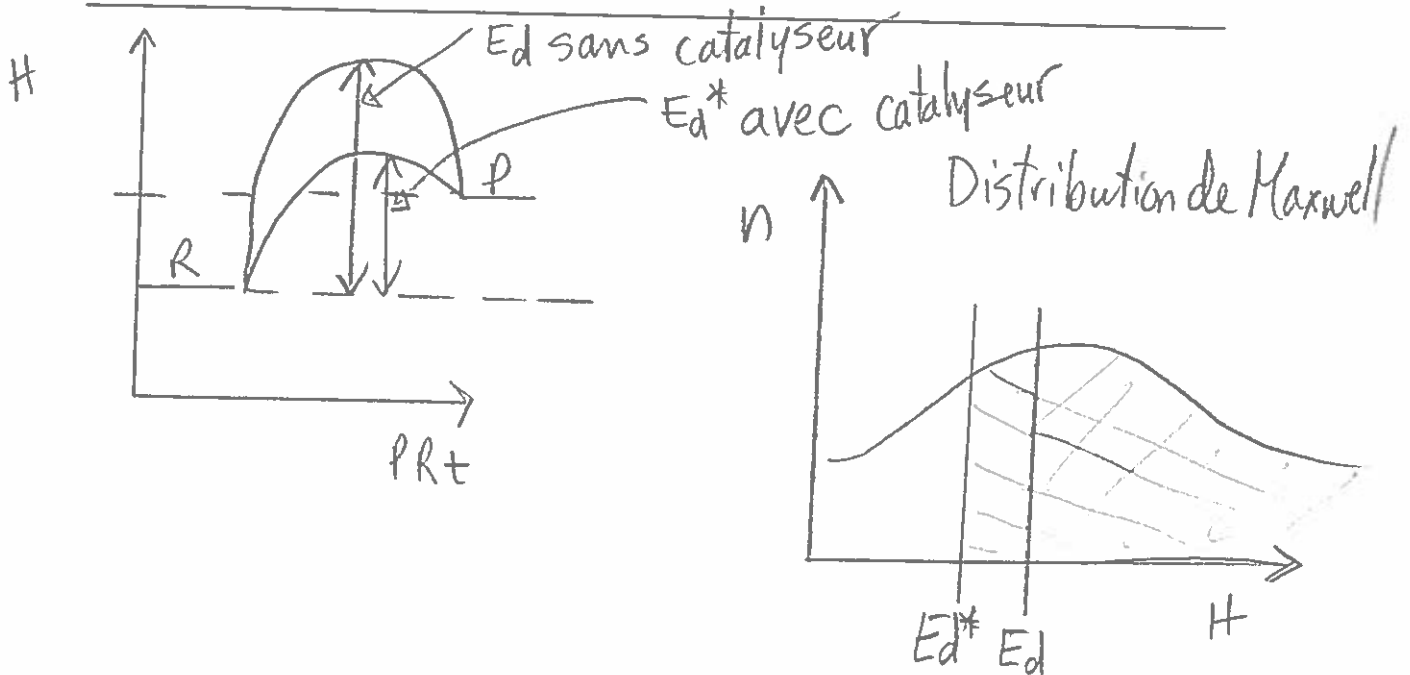 H
Ed sans catalyseur
Ed* avec catalyseur
P
R
PRt
Distribution de Maxwell
n
Ed* Ed
H